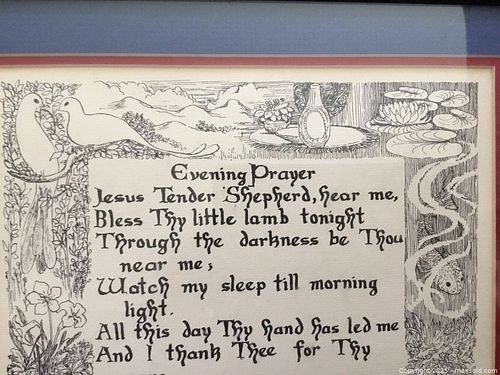 Evening Prayer
Jesus Tender Shepherd, hear me,
Bless Thy little lamb tonight
Through the darkness be Thou
near me;
Watch my sleep till morning
light.
All this day Thy hand has led me
And I thank Thee for Thy
Copyright 2025 - maxsold.com